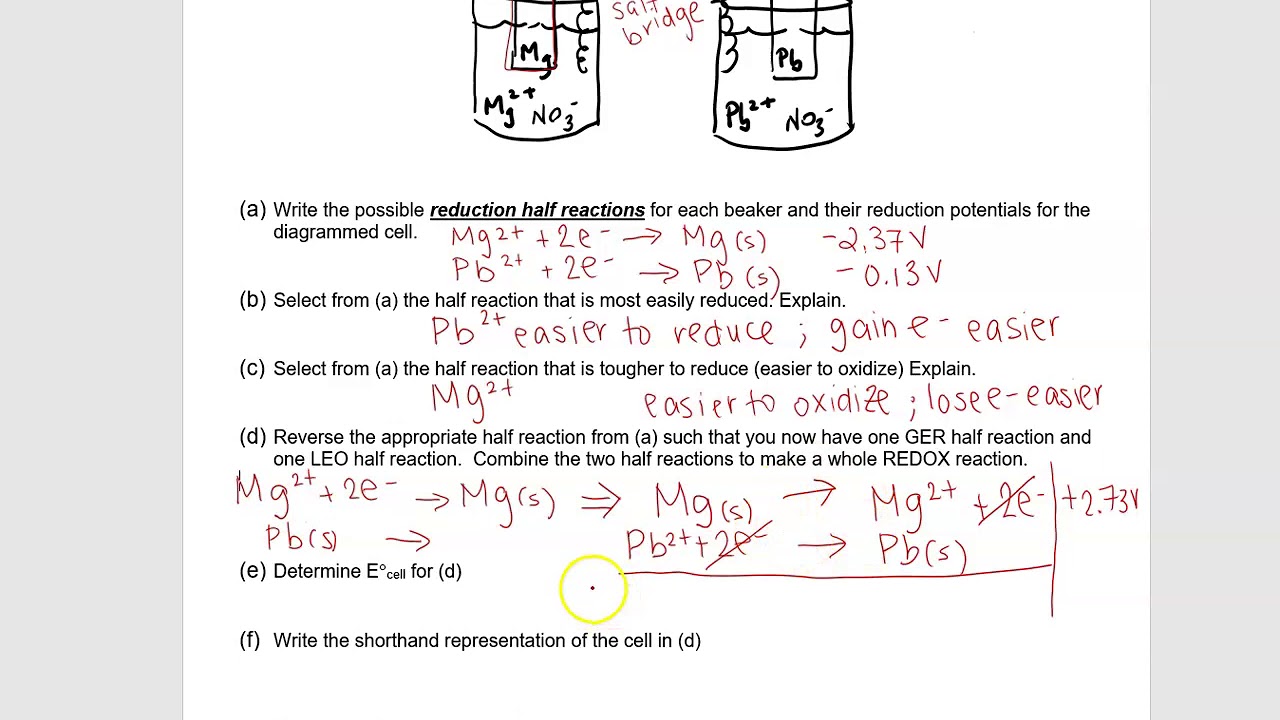 salt
bridge
Mg
Pb
Mg²⁺ NO₃⁻
Pb²⁺ NO₃⁻
(a) Write the possible reduction half reactions for each beaker and their reduction potentials for the
diagrammed cell.
Mg²⁺ + 2e⁻ → Mg(s) -2.37V
Pb²⁺ + 2e⁻ → Pb(s) -0.13V
(b) Select from (a) the half reaction that is most easily reduced. Explain.
Pb²⁺ easier to reduce ; gain e⁻ easier
(c) Select from (a) the half reaction that is tougher to reduce (easier to oxidize) Explain.
Mg²⁺ easier to oxidize ; lose e- easier
(d) Reverse the appropriate half reaction from (a) such that you now have one GER half reaction and
one LEO half reaction. Combine the two half reactions to make a whole REDOX reaction.
Mg²⁺ + 2e⁻ → Mg(s) ⇒ Mg(s) → Mg²⁺ + 2e⁻ +2.73V
Pb(s) → Pb²⁺ + 2e⁻ → Pb(s)
(e) Determine E°cell for (d)
(f) Write the shorthand representation of the cell in (d)